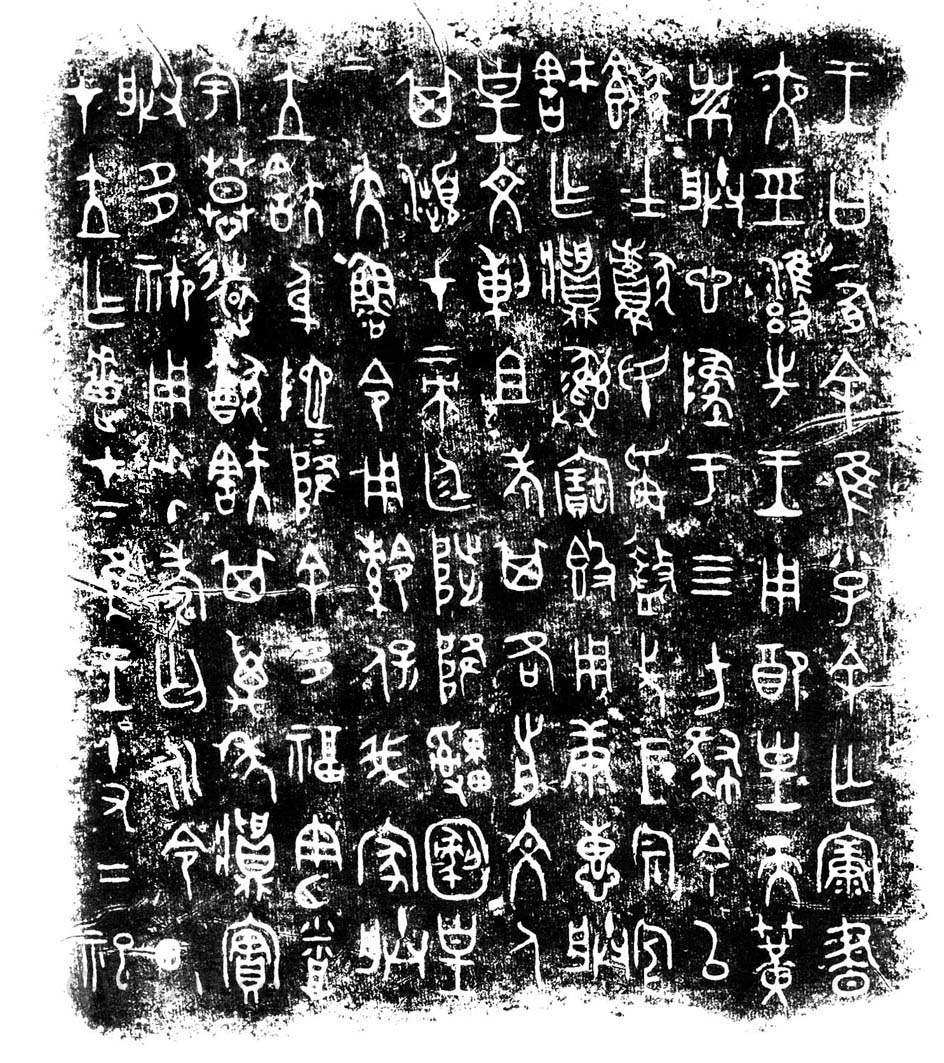 王曰有余隹小子余亡康晝
夜巠雝先王用配皇天黃
黹朕心墜于四方肆余以
士獻民爯盩先王宗室
㝬乍將彝寶簋用康惠朕
皇文剌且考其各前文人
其瀕才帝廷陟降皇
帝大魯令用保我家朕
立㝬身阤阤降余多福憲
宇慕遠猷㝬其萬年將實
朕多禦用壽匄永令畯
才立乍疐才下隹王十又二祀